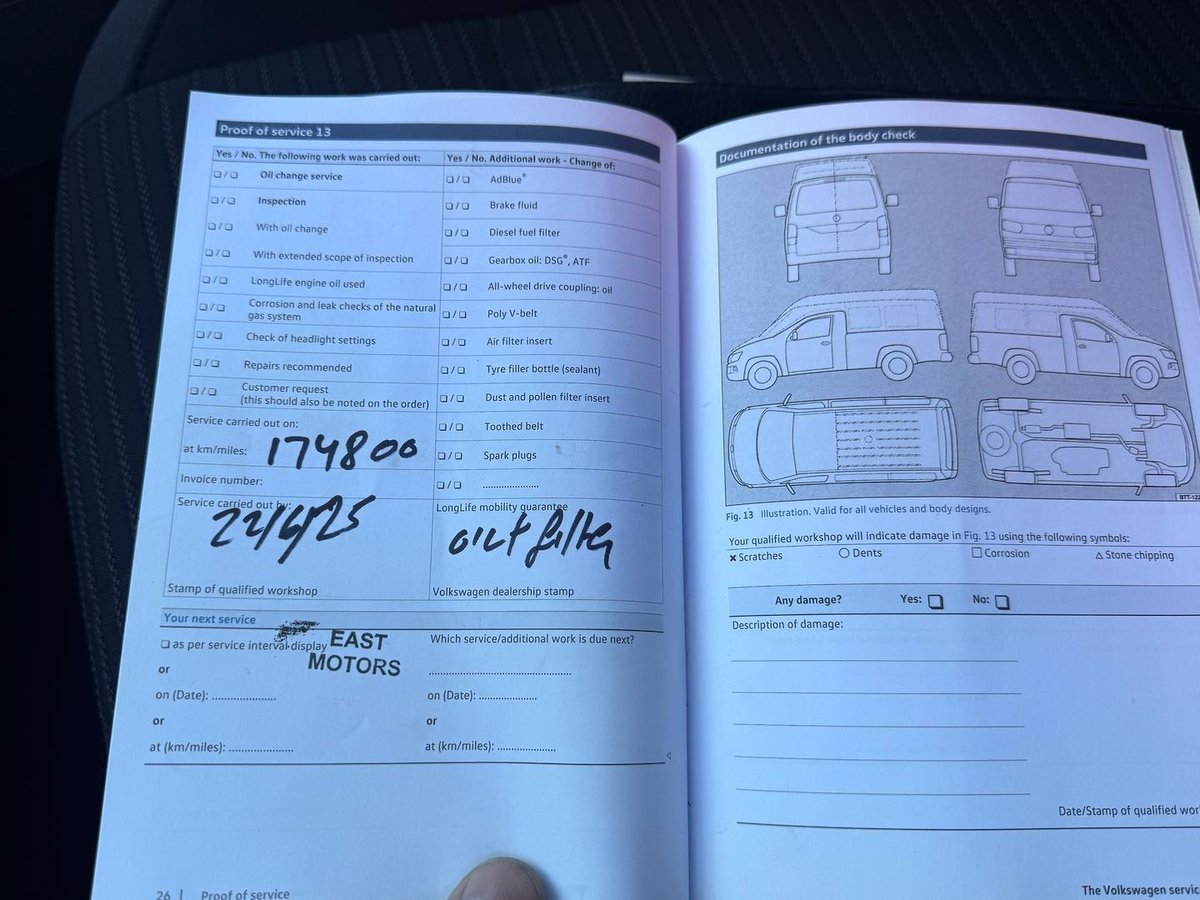 Proof of service 13
Yes / No. The following work was carried out:
❏ / ❏ Oil change service
❏ / ❏ Inspection
❏ / ❏ With oil change
❏ / ❏ With extended scope of inspection
❏ / ❏ LongLife engine oil used
❏ / ❏ Corrosion and leak checks of the natural
gas system
❏ / ❏ Check of headlight settings
❏ / ❏ Repairs recommended
❏ / ❏ Customer request
(this should also be noted on the order)
Service carried out on:
at km/miles: 174800
Invoice number:
Service carried out by:
22/6/25
Stamp of qualified workshop
Yes / No. Additional work - Change of:
❏ / ❏ AdBlue®
❏ / ❏ Brake fluid
❏ / ❏ Diesel fuel filter
❏ / ❏ Gearbox oil: DSG®, ATF
❏ / ❏ All-wheel drive coupling: oil
❏ / ❏ Poly V-belt
❏ / ❏ Air filter insert
❏ / ❏ Tyre filler bottle (sealant)
❏ / ❏ Dust and pollen filter insert
❏ / ❏ Toothed belt
❏ / ❏ Spark plugs
❏ / ❏ ....................
LongLife mobility guarantee
oil + filter
Volkswagen dealership stamp
Your next service
❏ as per service interval display
EAST
MOTORS
or
on (Date): ....................
or
at (km/miles): ....................
Which service/additional work is due next?
............................................
on (Date): ..................
or
at (km/miles): ..................
26 | Proof of service
Documentation of the body check
BTT-122
Fig. 13 Illustration. Valid for all vehicles and body designs.
Your qualified workshop will indicate damage in Fig. 13 using the following symbols:
✗ Scratches ○ Dents □ Corrosion △ Stone chipping
Any damage? Yes: ❏ No: ❏
Description of damage:
Date/Stamp of qualified wor
The Volkswagen servic